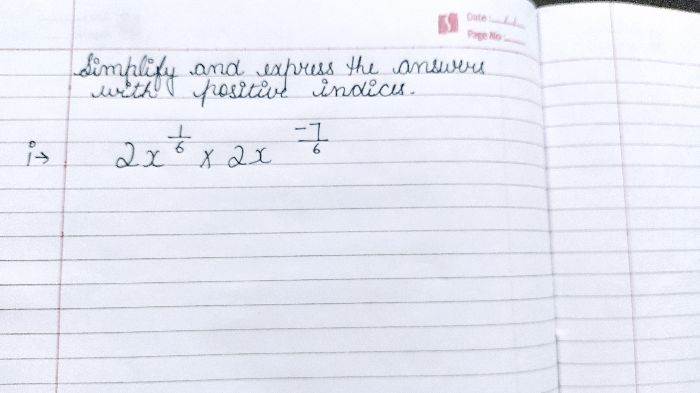 Date :
Page No :
Simplify and express the answers
with positive indices.
i→ 2x^(1/6) × 2x^(-7/6)